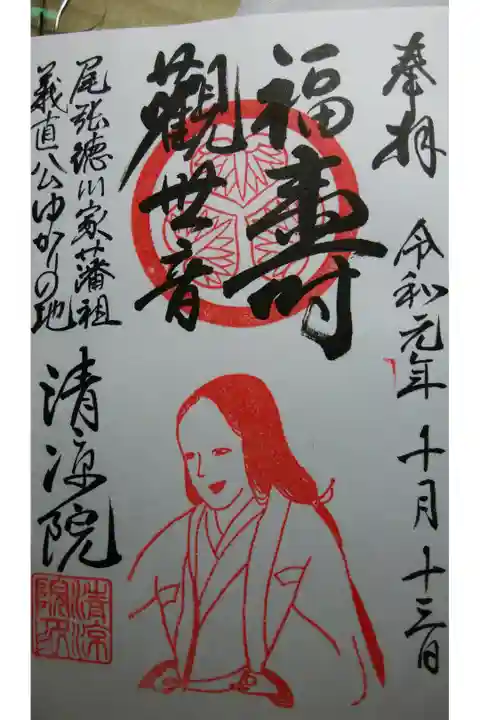 奉拝
令和元年十月十三日
福壽
觀世音
尾張徳川家藩祖
義直公ゆかりの地
清凉院
清涼
院印